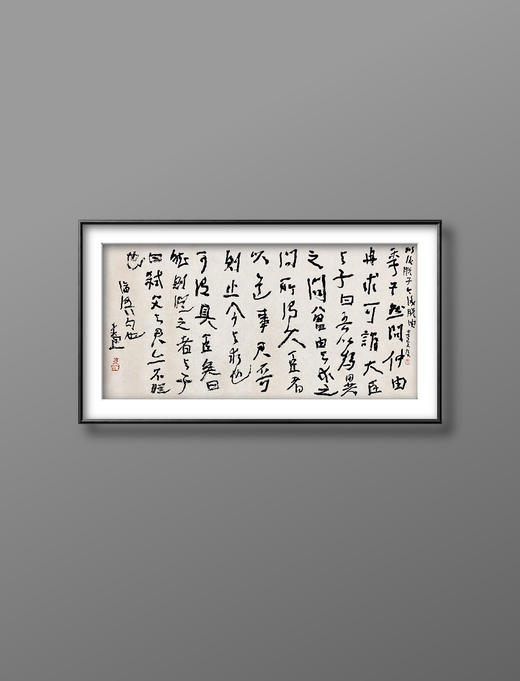 季子然問仲由
冉求可謂大臣
与子曰吾以為異
之問曾由与求之
問所謂大臣者
以道事君不可
則止今与求也
可謂具臣矣曰
然則從之者与子
曰弑父与君亦不從